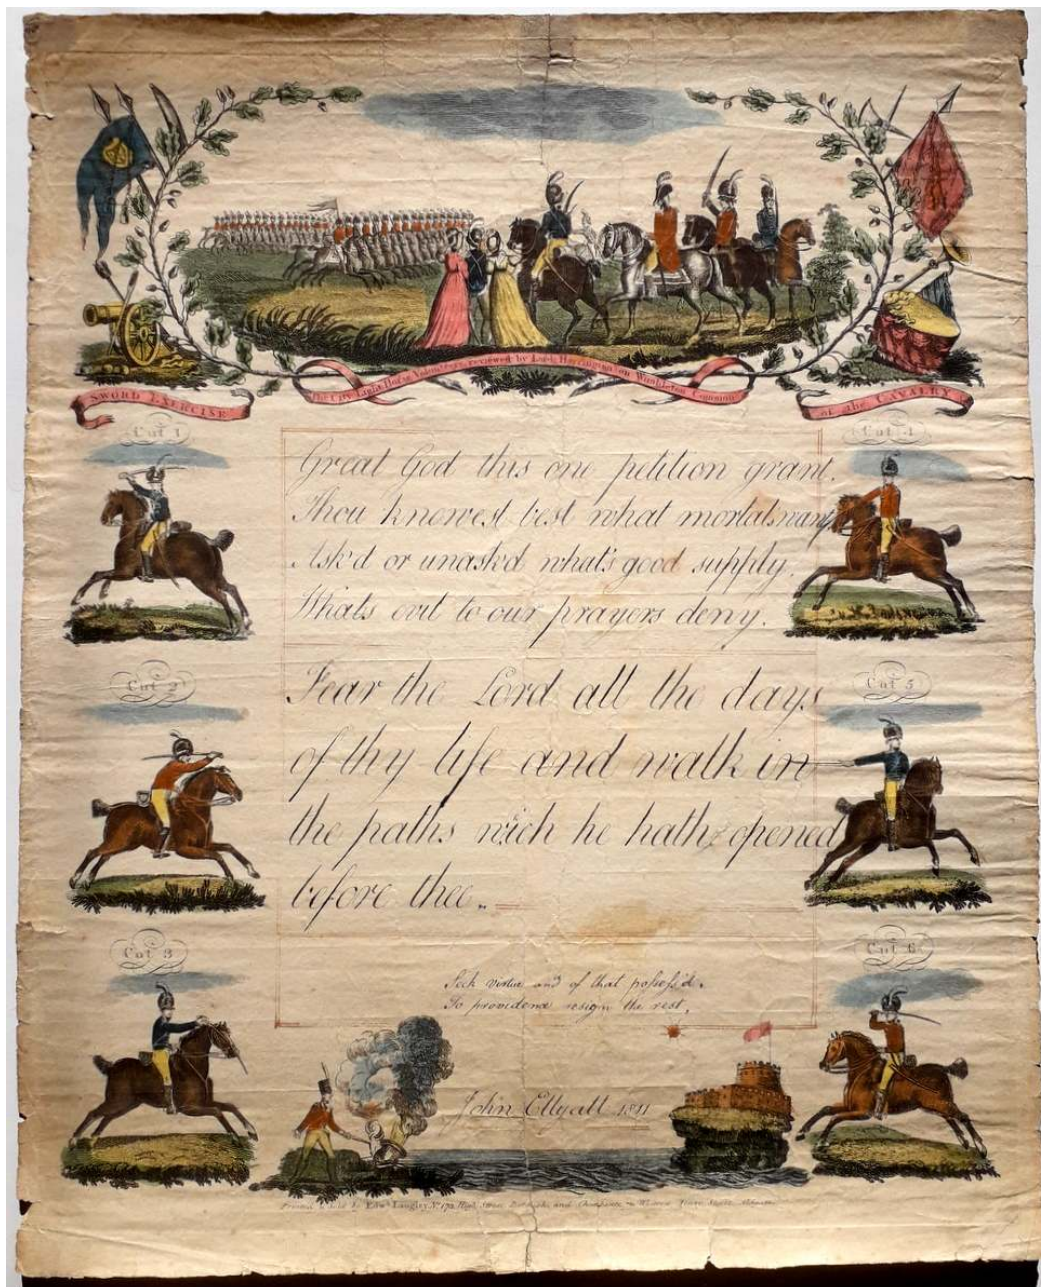 The City Light Horse Volunteers reviewed by Lord Harrington on Wimbleton Common
SWORD EXERCISE
of the CAVALRY
Cut 1
Cut 4
Great God this one petition grant.
Thou knowest best what mortals want,
Ask'd or unask'd what's good supply.
Whats evil to our prayers deny.
Cut 2
Cut 5
Fear the Lord all the days
of thy life and walk in
the paths wich he hath opened
before thee.
Cut 3
Cut 6
Seek virtue and of that posess'd.
To providence resign the rest.
John Ellyatt 1811
Printed & Sold by Edwd. Langley No. 173 High Street Borough, and